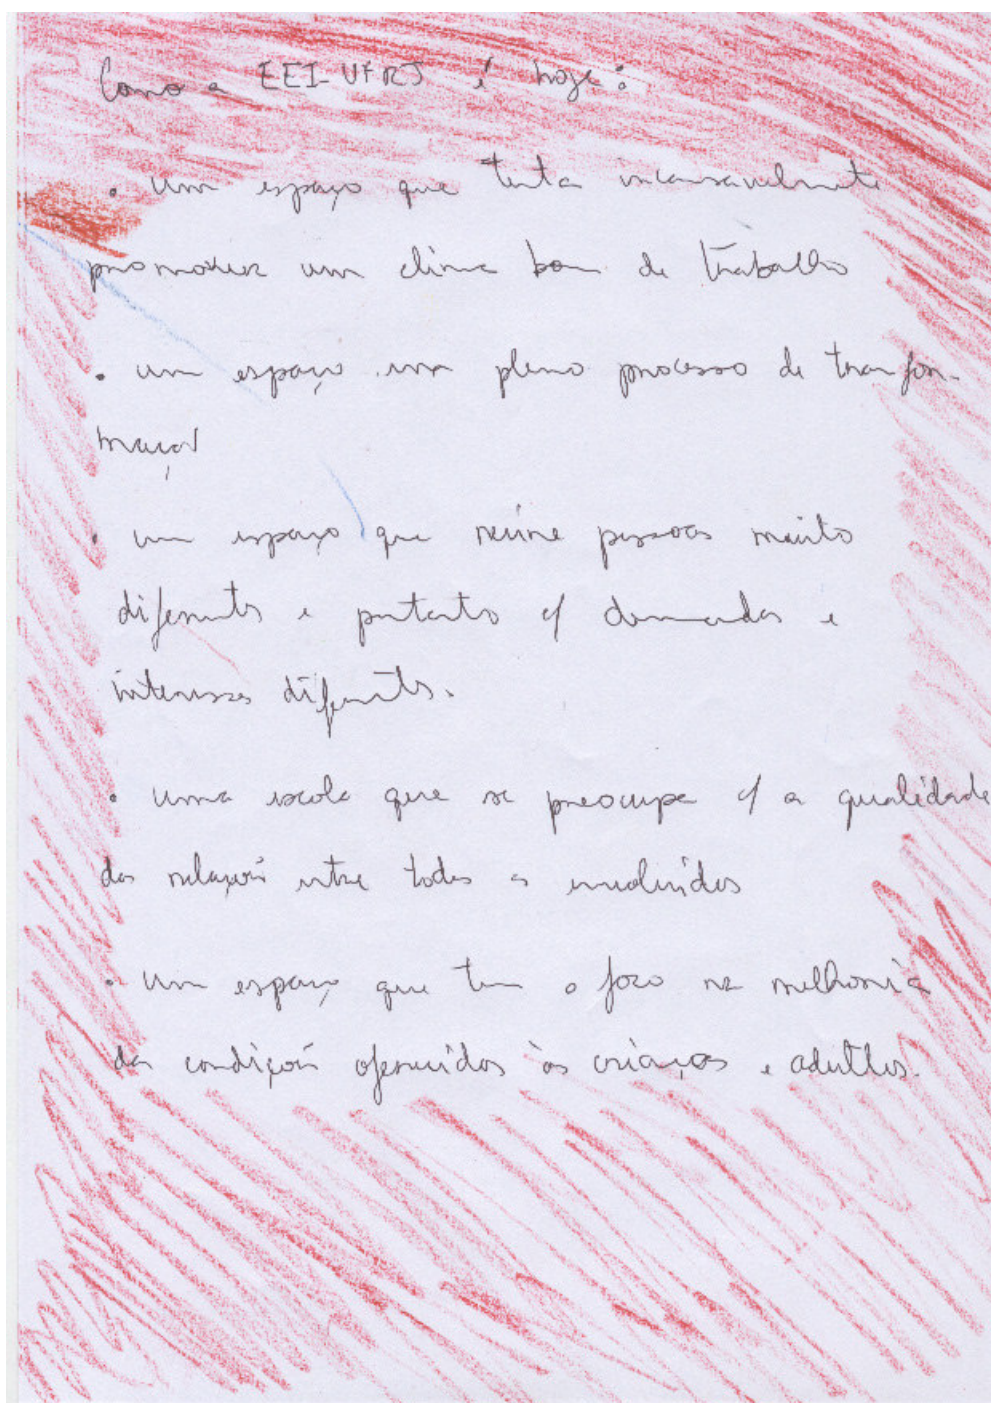 Como a EEI-UFRJ é hoje:
• um espaço que tenta incansavelmente
promover um clima bom de trabalho
• um espaço em pleno processo de transfor-
mação
• um espaço que reúne pessoas muito
diferentes e portanto c/ demandas e
interesses diferentes.
• uma escola que se preocupa c/ a qualidade
das relações entre todos os envolvidos
• um espaço que tem o foco na melhoria
das condições oferecidas às crianças e adultos.